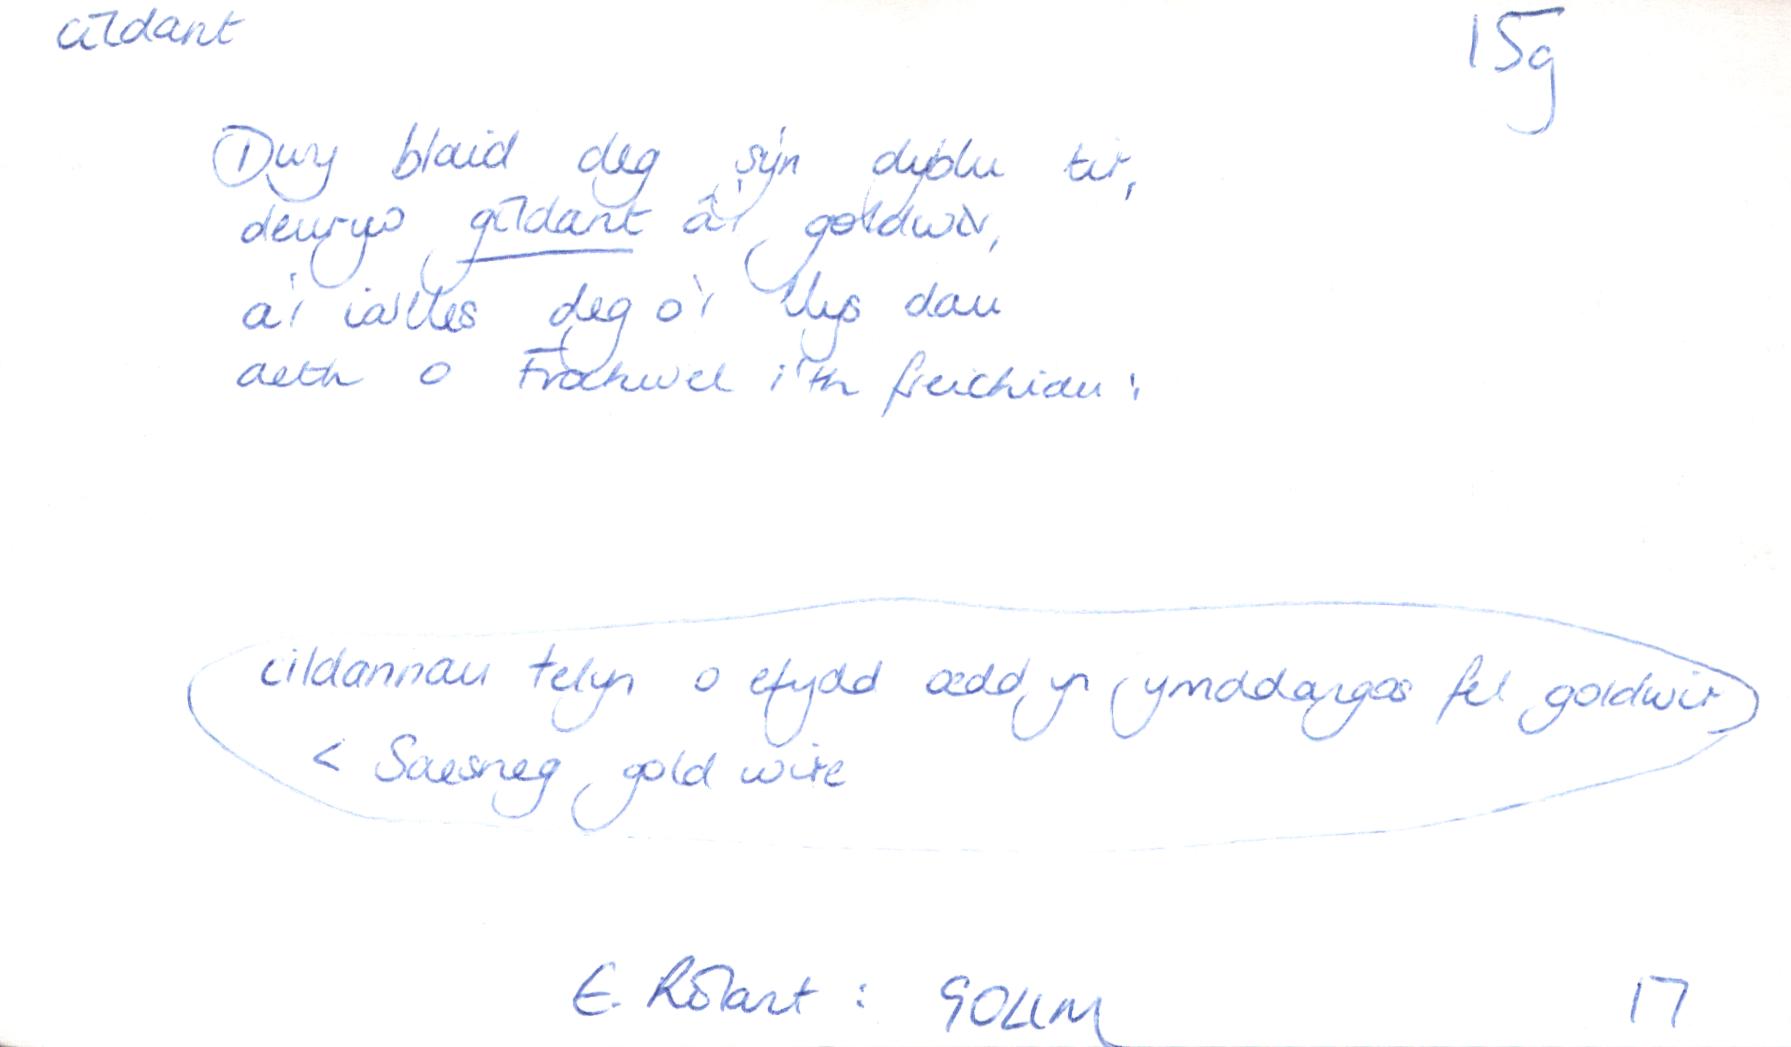 cildant 15g
Dwy blaid deg sy'n dyblu tir,
deuryw gildant â'r goldwir,
a'r iarlles deg o'r llys dau
aeth o Frochwel i'th freichiau:
cildannau telyn o efydd oedd yn ymddangos fel goldwir
< Saesneg gold wire
E. Rolant: GOLlM 17